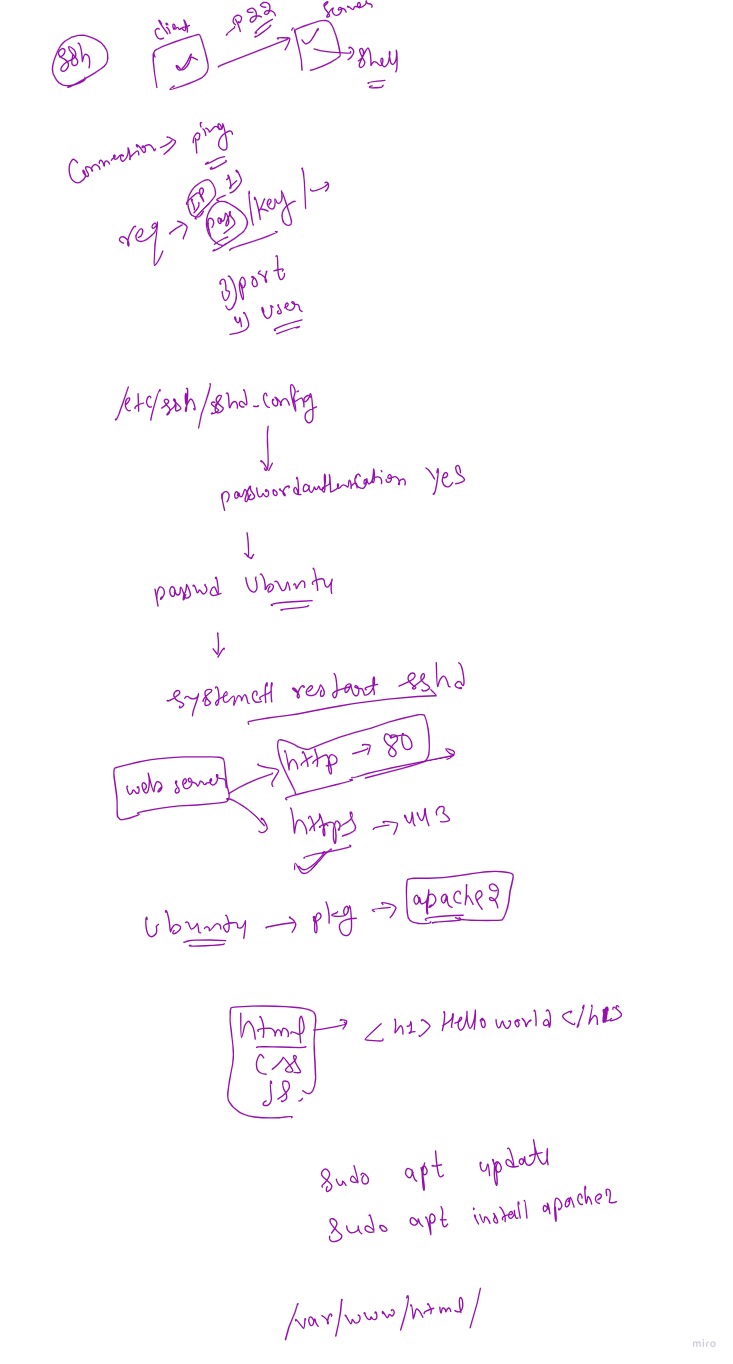 client P22 server
ssh
shell
Connection => ping
IP 1)
req -> pass/key/->
3) port
4) user
/etc/ssh/sshd_config
passwordauthentication yes
passwd Ubuntu
systemctl restart sshd
http -> 80
web server
https -> 443
Ubuntu -> pkg -> apache2
html -> <h1> Hello world </h1>
css
JS.
sudo apt update
sudo apt install apache2
/var/www/html/
miro